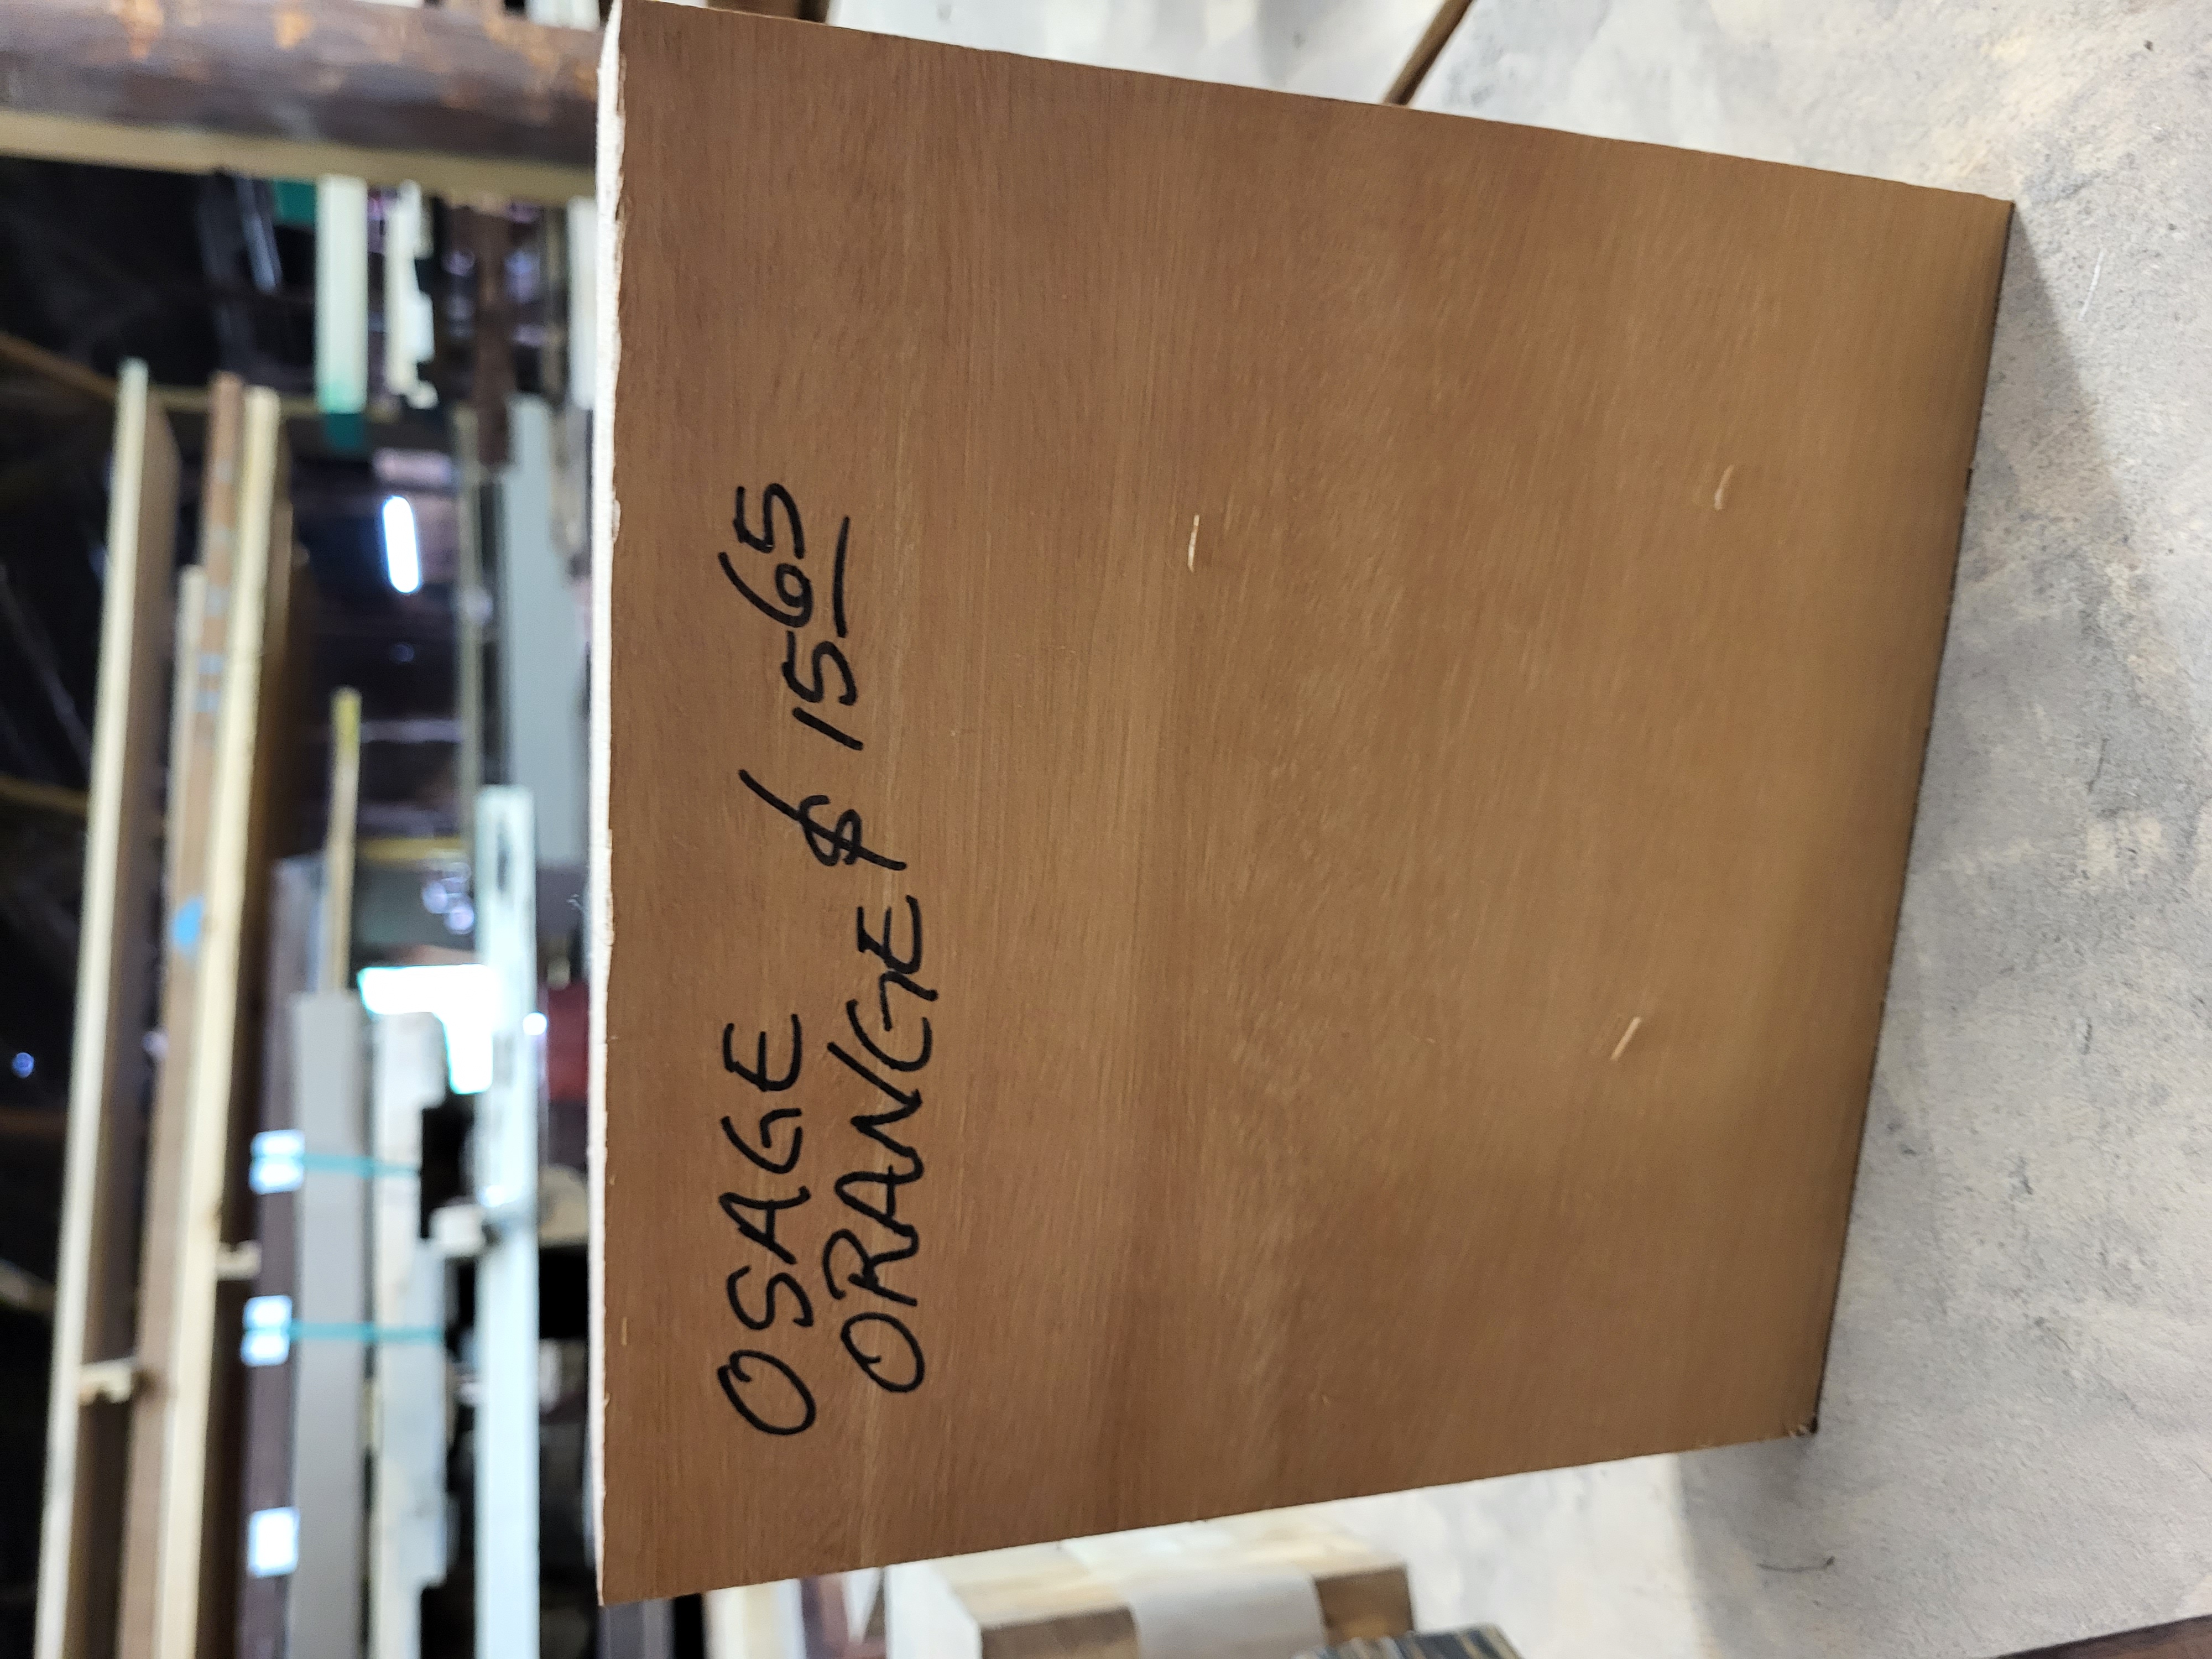 OSAGE
ORANGE $ 15 65